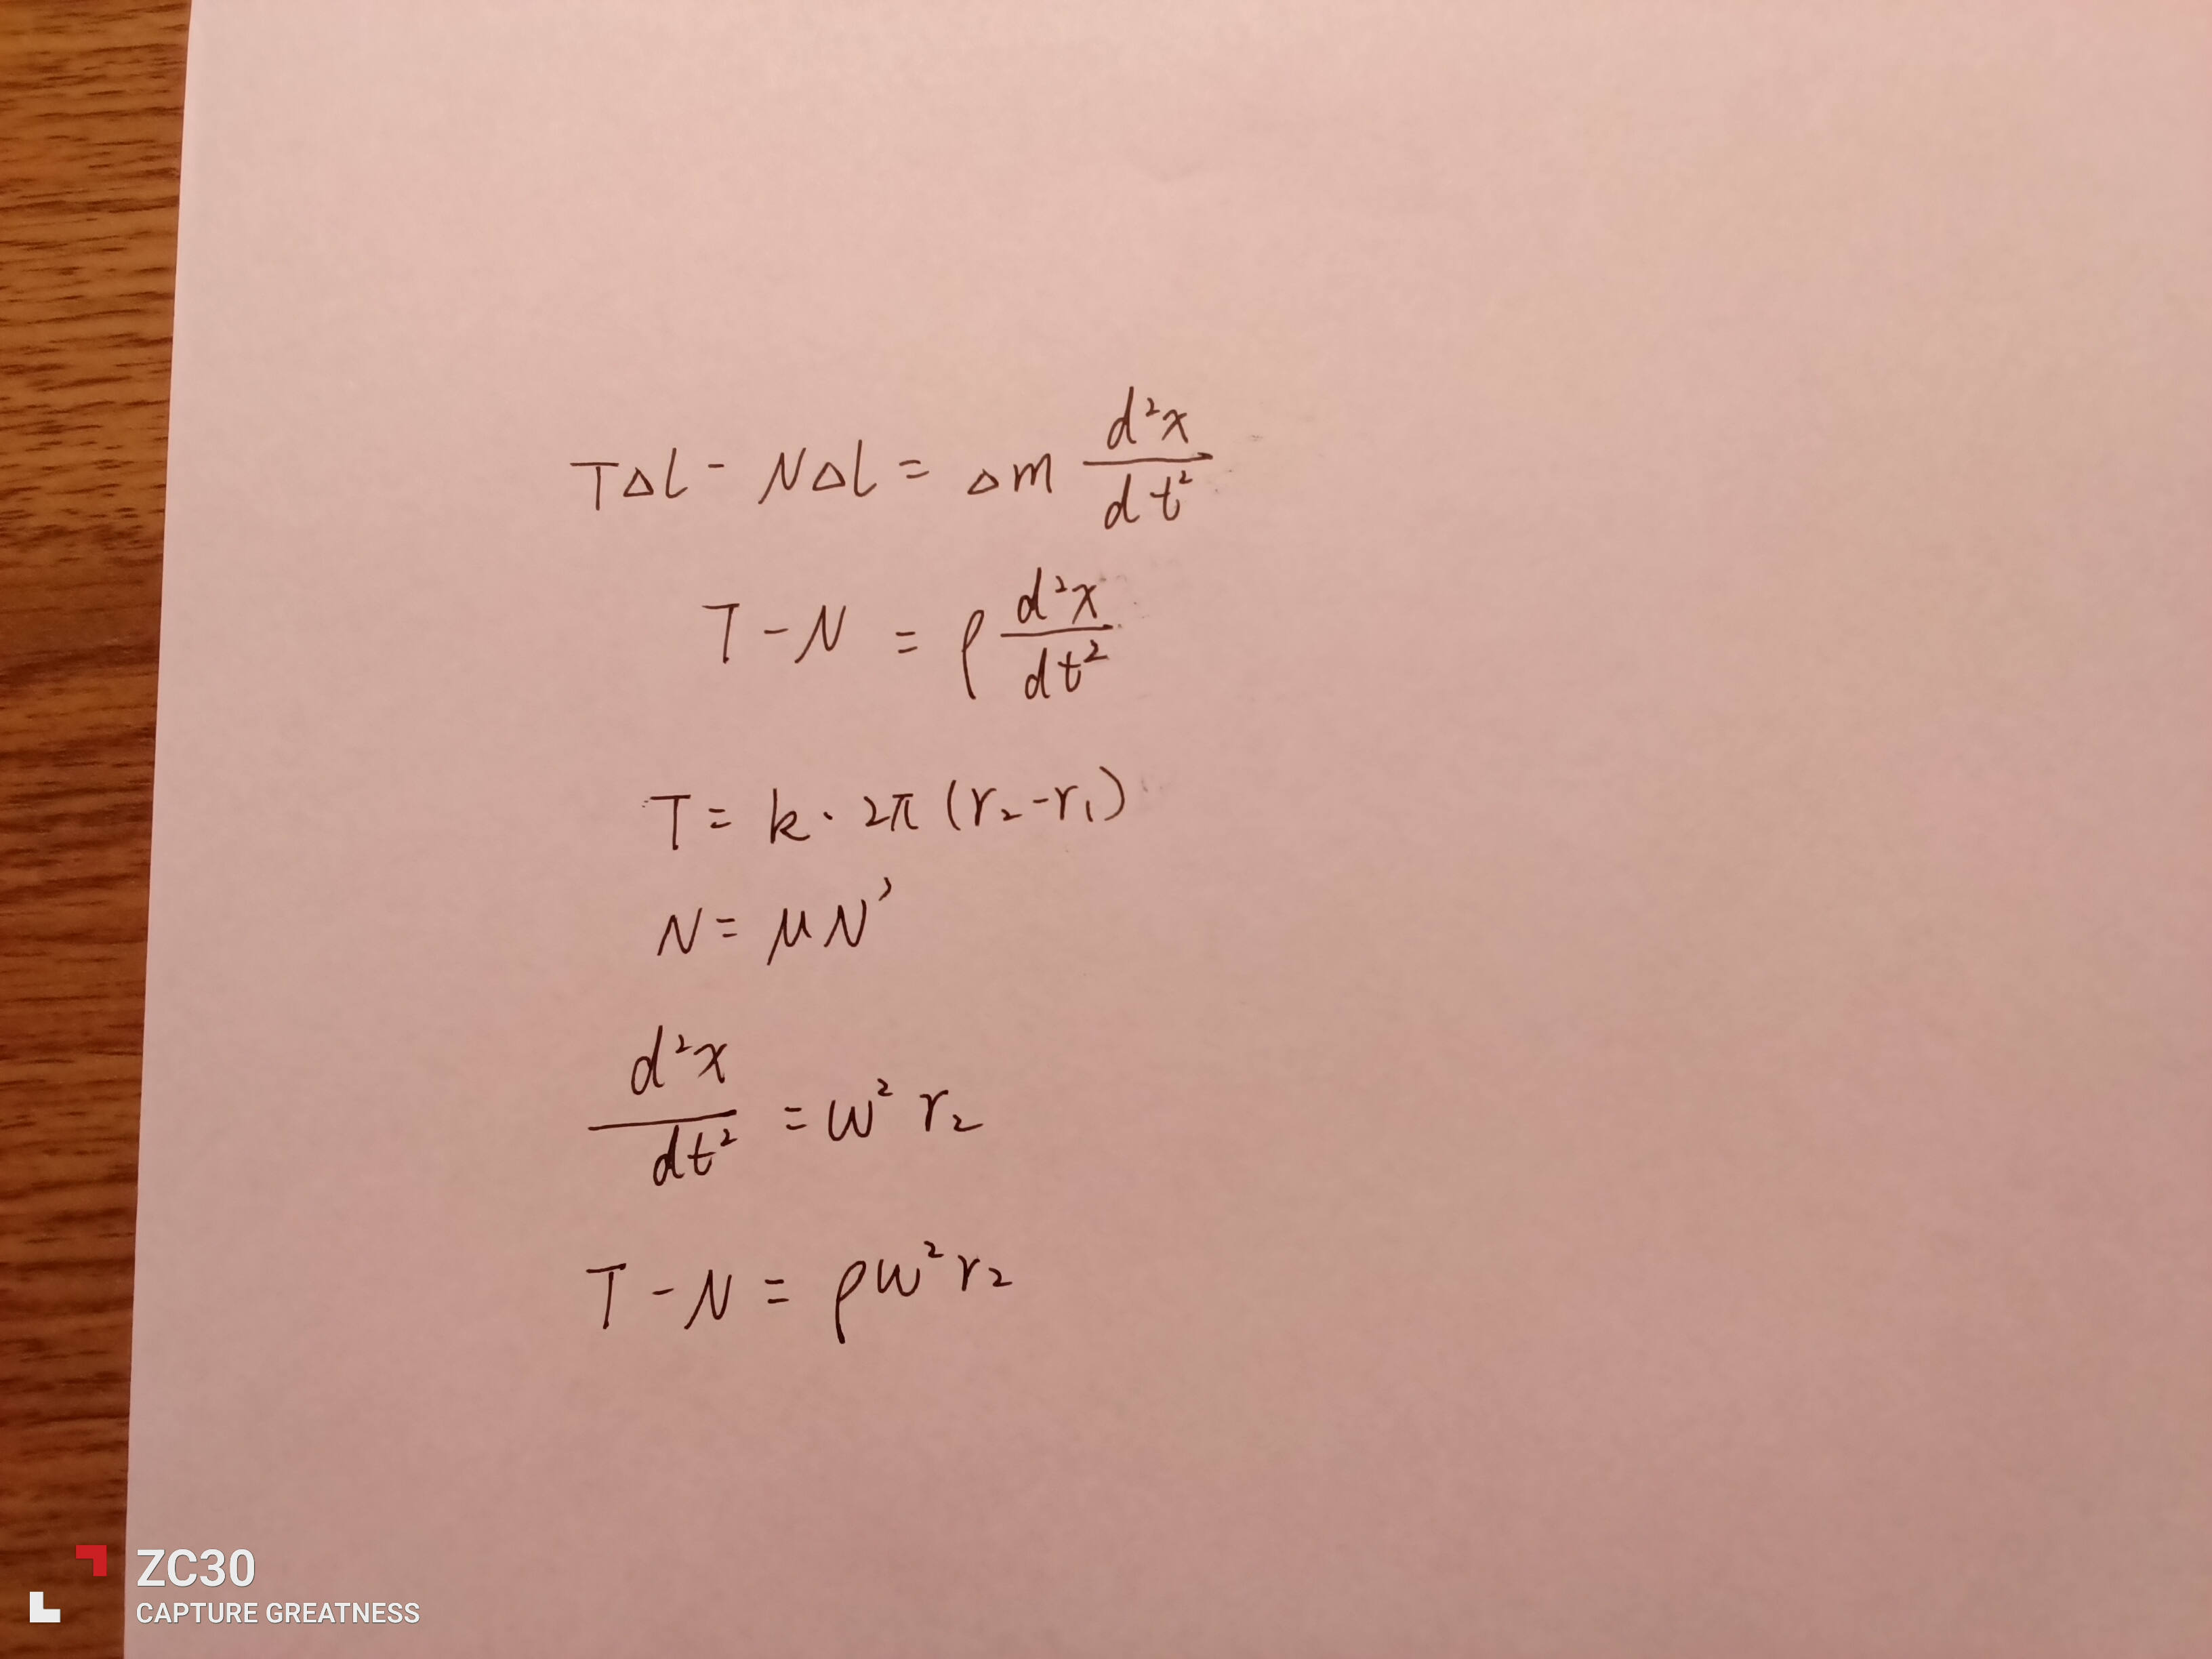 TΔl - NΔl = Δm d²x/dt²
T - N = ρ d²x/dt²
T = k · 2π (r₂ - r₁)
N = μN'
d²x/dt² = ω² r₂
T - N = ρω² r₂
ZC30
CAPTURE GREATNESS